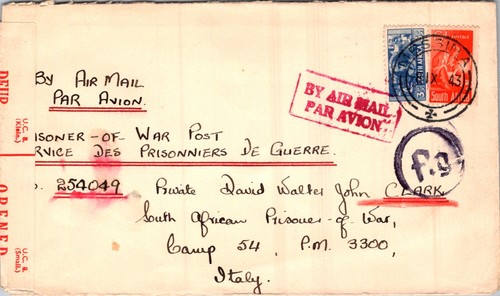 BY AIR MAIL
PAR AVION.
BY AIR MAIL
PAR AVION
ISONER-OF WAR POST
RVICE DES PRISONNIERS DE GUERRE.
254049 Private David Walter John CLARK,
South African Prisoner-of-War,
Camp 54, P.M. 3300,
Italy.
MESSINA
IX 43
South Africa
P.9
U.C. B.
(Klein.)
OPENED
U.C. B.
(Small.)